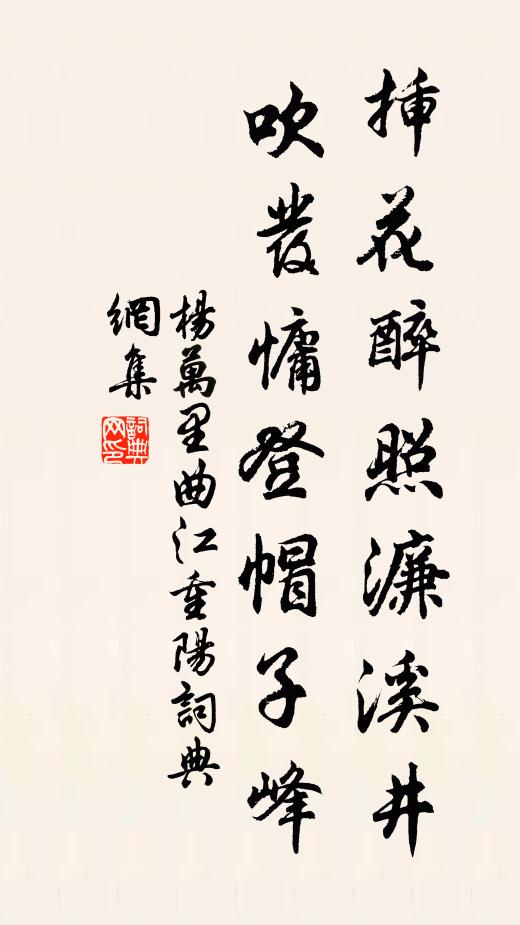 挿花醉照濂溪井
吹髮慵登帽子峰
楊萬里曲江重陽詞典
網集
詞典網印